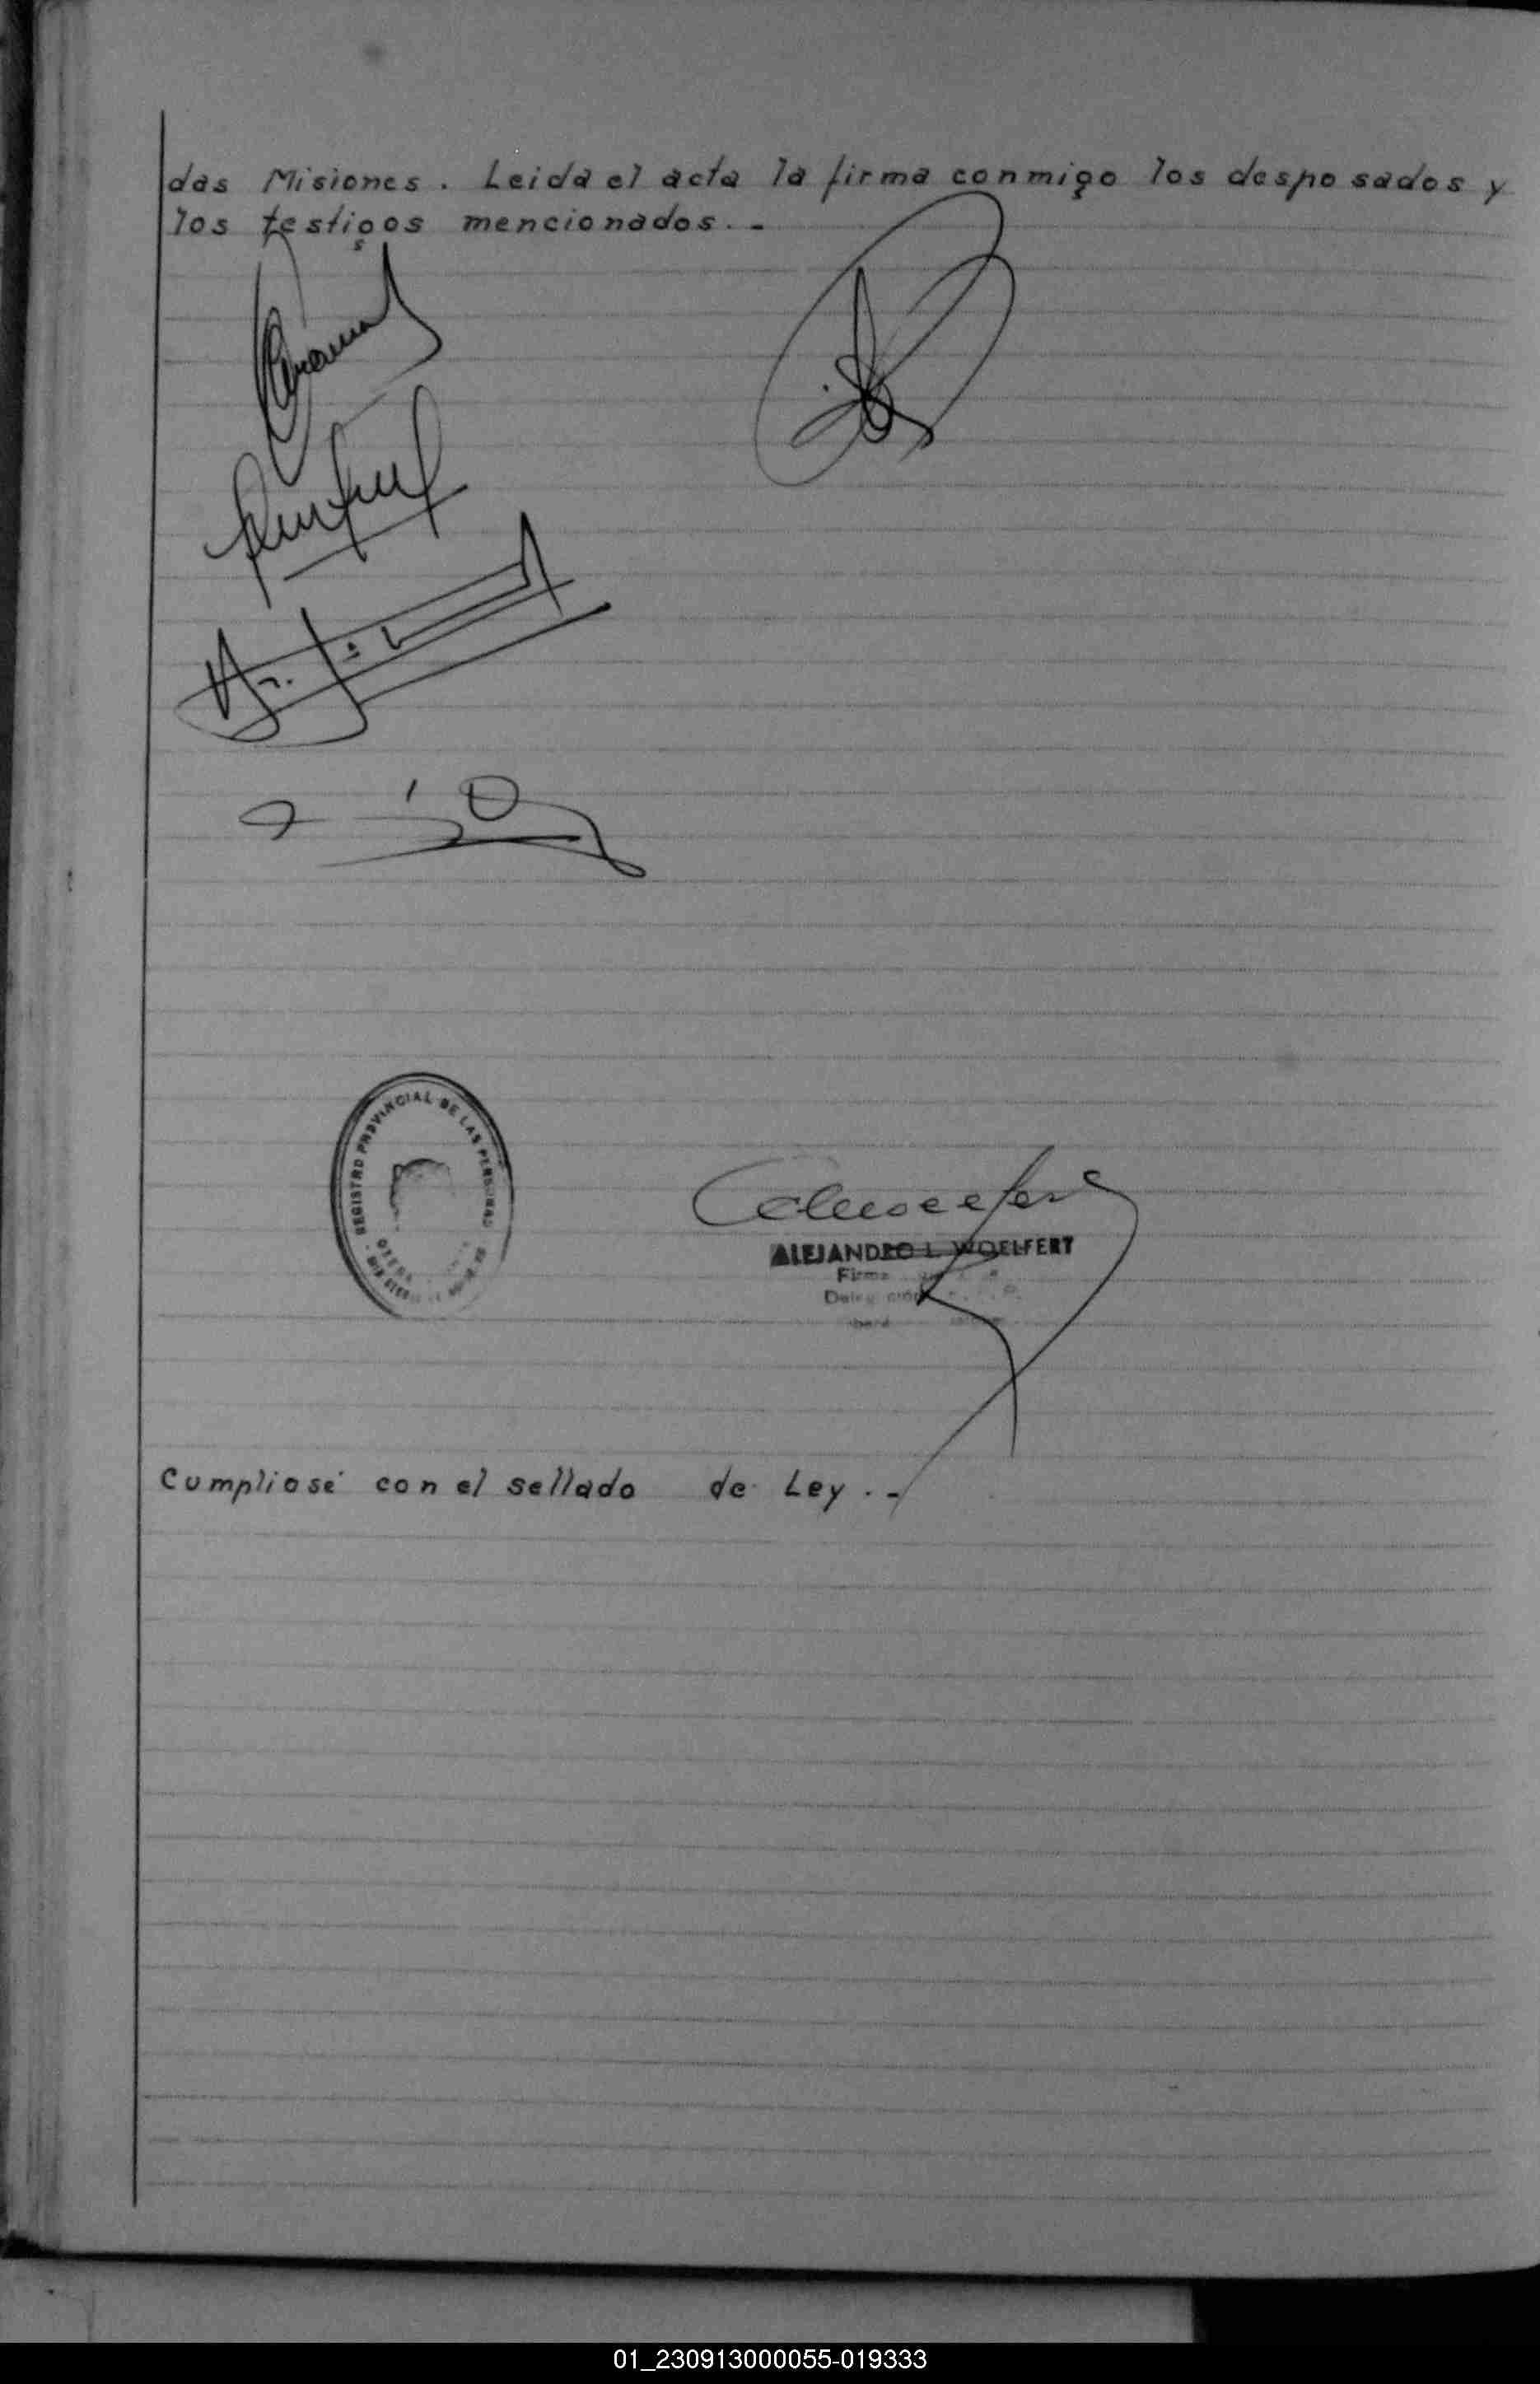 das Misiones. Leida el acta la firma conmigo los desposados y
los testigos mencionados.-
REGISTRO PROVINCIAL DE LAS PERSONAS
ALEJANDRO L. WOELFERT
Firma
Cumpliose con el sellado de Ley.-
01_230913000055-019333